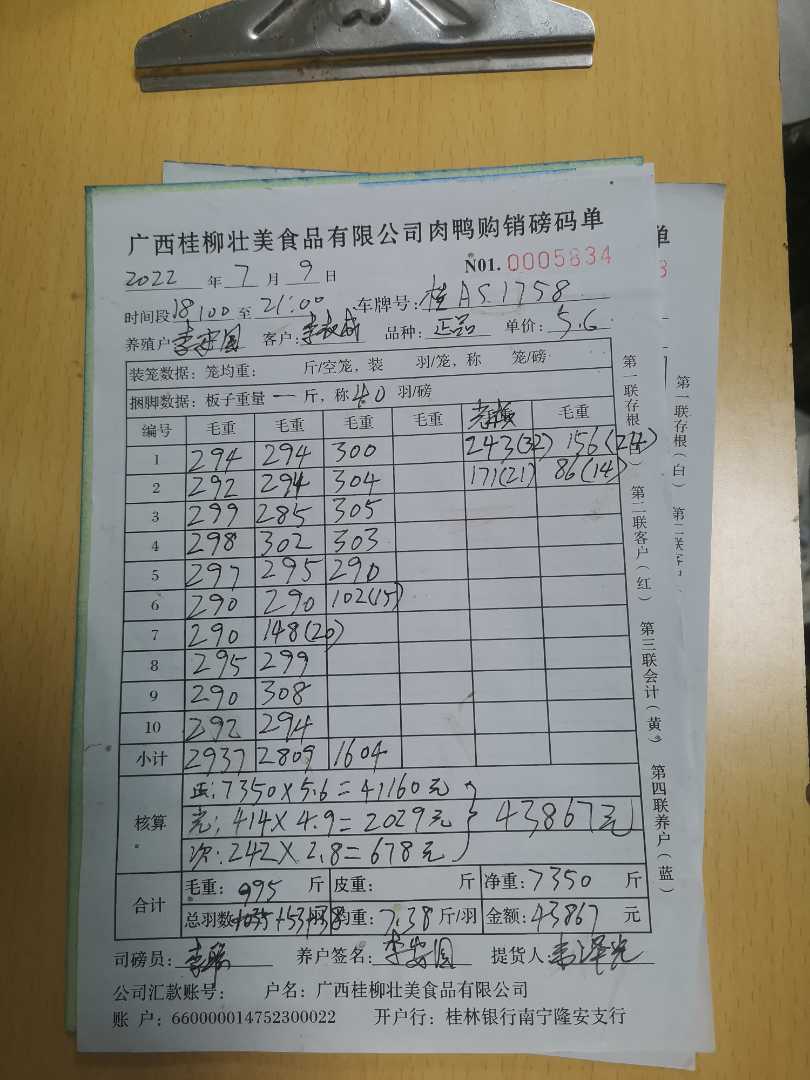 广西桂柳壮美食品有限公司肉鸭购销磅码单
2022 年 7 月 9 日 N01. 0005834
时间段 18:00 至 21:00 车牌号: 桂AS1758
养殖户 客户: 品种: 正品 单价: 5.6
装笼数据: 笼均重: 斤/空笼, 装 羽/笼, 称 笼/磅
捆脚数据: 板子重量 一 斤, 称 40 羽/磅
编号 毛重 毛重 毛重 毛重 毛重
1 294 294 300 243(32) 156(24)
2 292 294 304 171(21) 86(14)
3 299 285 305
4 298 302 303
5 297 295 290
6 290 290 102(15)
7 290 148(20)
8 295 299
9 290 308
10 292 294
小计 2937 2809 1604
核算
正: 7350×5.6=41160元
光: 414×4.9=2029元 43867元
次: 242×2.8=678元
合计
毛重: 995 斤 皮重: 斤 净重: 7350 斤
总羽数 1035+53+38 均重: 7.38 斤/羽 金额: 43867 元
司磅员: 养户签名: 提货人:
公司汇款账号: 户名: 广西桂柳壮美食品有限公司
账 户: 660000014752300022 开户行: 桂林银行南宁隆安支行
第一联存根(白) 第二联客户(红) 第三联会计(黄) 第四联养户(蓝)
单
3
第一联存根(白) 第二联客户